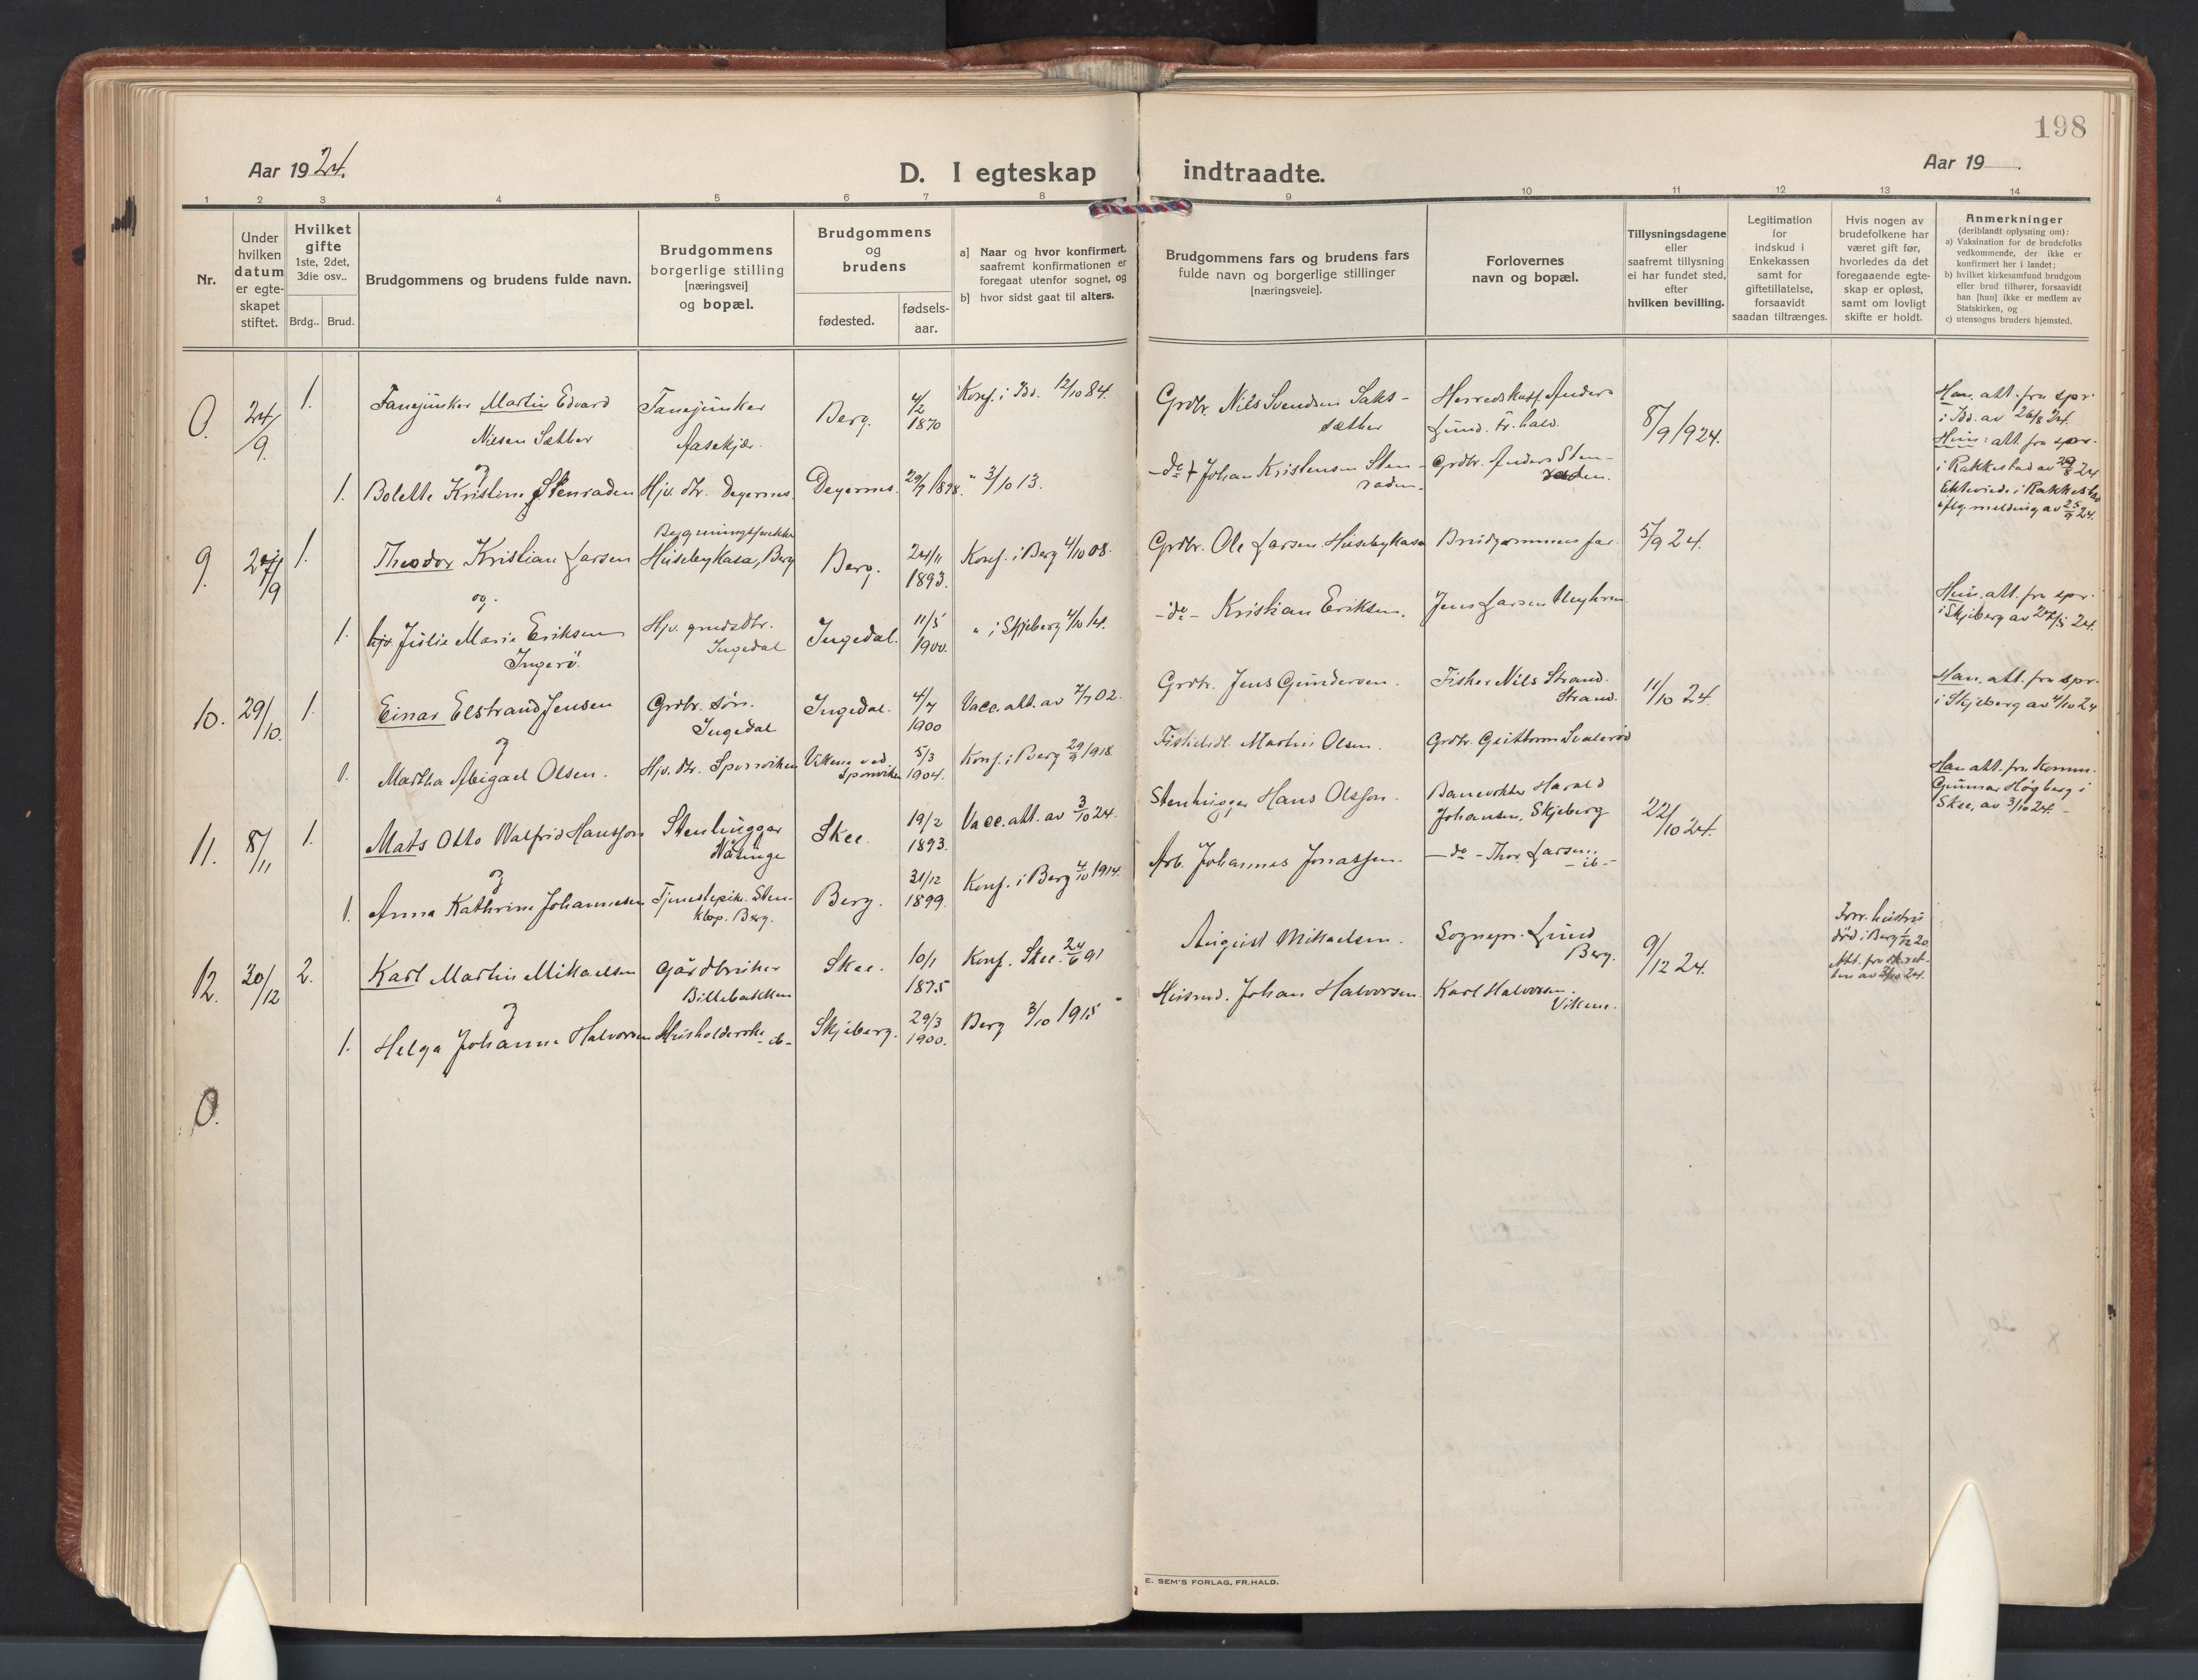 198
Aar 1924.
D. I egteskap indtraadte.
Aar 19
1 2 3 4 5 6 7 8 9 10 11 12 13 14
Nr.
Under
hvilken
datum
er egte-
skapet
stiftet.
Hvilket
gifte
1ste, 2det,
3die osv..
Brdg..
Brud.
Brudgommens og brudens fulde navn.
Brudgommens
borgerlige stilling
[næringsvei]
og bopæl.
Brudgommens
og
brudens
fødested.
fødsels-
aar.
a] Naar og hvor konfirmert,
saafremt konfirmationen er
foregaat utenfor sognet, og
b] hvor sidst gaat til alters.
Brudgommens fars og brudens fars
fulde navn og borgerlige stillinger
[næringsveie].
Forlovernes
navn og bopæl.
Tillysningsdagene
eller
saafremt tillysning
ei har fundet sted,
efter
hvilken bevilling.
Legitimation
for
indskud i
Enkekassen
samt for
giftetillatelse,
forsaavidt
saadan tiltrænges.
Hvis nogen av
brudefolkene har
været gift før,
hvorledes da det
foregaaende egte-
skap er opløst,
samt om lovligt
skifte er holdt.
Anmerkninger
(deriblandt oplysning om):
a) Vaksination for de brudefolks
vedkommende, der ikke er
konfirmert her i landet;
b) hvilket kirkesamfund brudgom
eller brud tilhører, forsaavidt
han [hun] ikke er medlem av
Statskirken, og
c) utensogns bruders hjemsted.
0. 24/9. 1. Fanejunker Martin Edvard
Nilsen Sæther
Fanejunker
Aasekjær.
Berg.
4/2
1870
Konf. i Idd. 12/10 84.
Grdbr. Nils Svendsen Saks-
sæther
Herredskass. Anders
Lund. Fr.hald.
8/9 1924.
Han. att. fra spr.
i Idd. av 26/8 24.
Hun: att. fra spr.
i Rakkestad av 29/8 24
Ekteviede i Rakkestad
iflg. melding av 25/9 24.
og
1. Bolette Kristine Stenraden
Hjv. dtr. Degernes.
Degernes.
29/7 1898.
" 3/10 13.
-do- † Johan Kristensen Sten-
raden.
Grdbr. Anders Sten-
raden.
9. 27/9 1. Theodor Kristian Larsen
Husebykasa, Berg
Berg.
24/11
1893.
Konf. i Berg 4/10 08.
Grdbr. Ole Larsen Husebykasa
Brudgommens far
5/9 24.
og.
1. hjv. Julie Marie Eriksen
Ingerø.
Hjv. grdbdtr.
Ingedal
Ingedal.
11/5
1900.
" i Skjeberg 4/10 14.
-do- Kristian Eriksen.
Jens Larsen
Hun. att. fra spr.
i Skjeberg av 24/5 24.
10. 29/10. 1. Einar Elstrand Jensen
Grdbr. søn.
Ingedal
Ingedal.
4/7
1900
Vacc. att. av 7/7 02.
Grdbr. Jens Gundersen.
Fisker Nils Strand.
Strand.
11/10 24.
Han. att. fra spr.
i Skjeberg av 4/10 24
og
1. Martha Abigael Olsen.
Hjv. dtr. Sponviken
Vikene ved
Sponviken
5/3
1904.
Konf. i Berg 29/9 1918.
Martin Olsen.
Grdbr. Guttorm Svalerød
11. 8/11 1. Mats Otto Walfrid Hansson
Stenhugger
Skee.
19/2
1893.
Vacc. att. av 3/10 24.
Stenhugger Hans Olsson.
Banevokter Harald
Johansen, Skjeberg
22/10 24.
Han att. fra Komm.
Gunnar Högberg i
Skee, av 3/10 24.
og
1. Anna Kathrine Johannesen
Tjenestepike. Sten-
klop. Berg.
Berg.
31/12
1899.
Konf. i Berg 4/10 1914.
Arb. Johannes Jonassen.
-do- Thor Larsen,
-ib-
12. 30/12 2. Karl Martin Mikaelsen
Gårdbruker
Billebakken
Skee.
10/1
1875
Konf. Skee. 24/6 91
August Mikaelsen.
Sognepr. Lund
Berg.
9/12 24.
Forr. hustru
død i Berg 1/12 20.
Att. fra skifteret-
ten av 2/10 24.
og
1. Helga Johanne Halvorsen
Husholderske -ib-
Skjeberg.
29/3
1900.
Berg 3/10 1915
Husmd. Johan Halvorsen.
Karl Halvorsen.
Vikene.
0.
E. SEM'S FORLAG, FR.HALD.